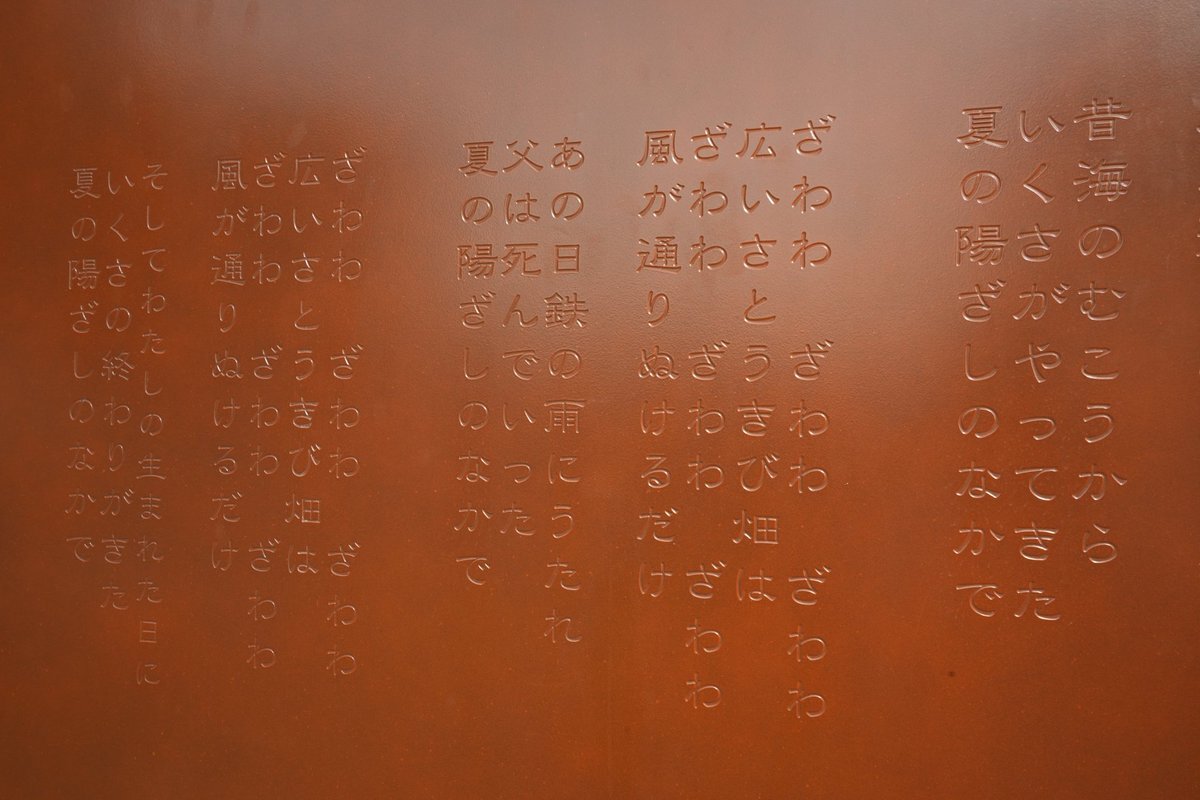 昔海のむこうから
いくさがやってきた
夏の陽ざしのなかで
ざわわ ざわわ ざわわ
広いさとうきび畑は
ざわわ ざわわ ざわわ
風が通りぬけるだけ
あの日鉄の雨にうたれ
父は死んでいった
夏の陽ざしのなかで
ざわわ ざわわ ざわわ
広いさとうきび畑は
ざわわ ざわわ ざわわ
風が通りぬけるだけ
そしてわたしの生まれた日に
いくさの終わりがきた
夏の陽ざしのなかで